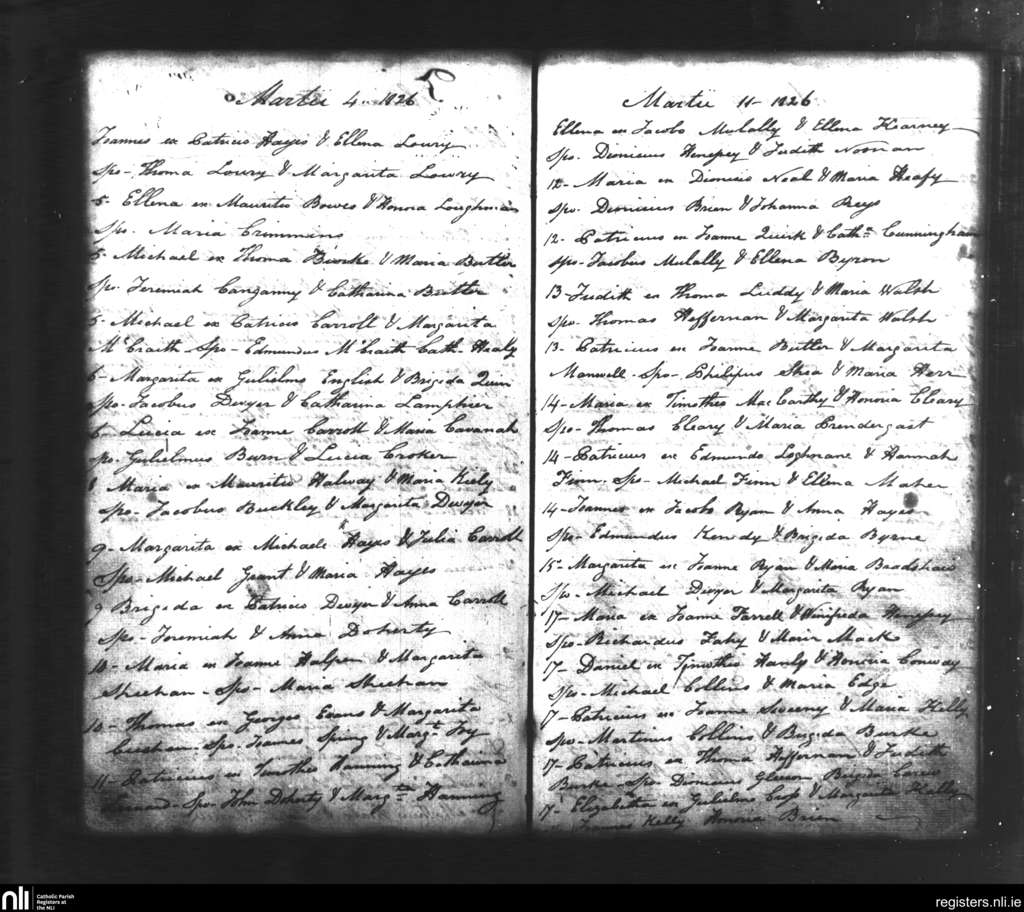 Martii 4 1826
Joannes ex Patricio Hayes & Ellena Lowry
Spo- Thoma Lowry & Margarita Lowry
5- Ellena ex Mauritio Bowes & Honora
Spo. Maria Crimmans
5- Michael ex Thoma Bourke & Maria Butler
Spo. Jeremiah & Catharina Butler
5- Michael ex Patricio Carroll & Margarita
McCraith Spo- Edmundus McCraith Cath- Healy
6- Margarita ex Gulielmo English & Brigida Quin
Spo- Jacobus Dwyer & Catharina Lamphier
6- Lucia ex Joanne Carroll & Maria Cavanah
Spo- Gulielmus Burn & Lucia Croker
8 Maria ex Mauritio Halway & Maria Kiely
Spo- Jacobus Buckley & Margarita Dwyer
9- Margarita ex Michaele Hayes & Julia Carroll
Spo- Michael Grant & Maria Hayes
9 Brigida ex Patricio Dwyer & Anna Carroll
Spo- Jeremiah & Anna Doherty
10- Maria ex Joanne Halpen & Margarita
Sheehan- Spo- Maria Sheehan
10- Thomas ex Georgeo Evans & Margarita
Spo- Joannes & Margt
11- Patricius ex Timotheo Hanning & Catharina
Spo- John Doherty & Margta Hanning
Martii 11- 1826
Ellena ex Jacobo Mulally & Ellena Kearney
Spo. Dionicius Henesey & Judith Noonan
12- Maria ex Dionicio Neal & Maria Heafy
Spo. Dionicius Brien & Johanna Reys
12- Patricius ex Joanne Quirk & Cathn Cunningham
Spo- Jacobus Mulally & Ellena Byron
13- Judith ex Thoma Luddy & Maria Walsh
Spo. Thomas Heffernan & Margarita Walsh
13- Patricius ex Joanne Butler & Margarita
Manwell- Spo- Philipus Shea & Maria Herr
14- Maria ex Timotheo MacCarthy & Honoria Cleary
Spo- Thomas Cleary & Maria Prendergast
14- Patricius ex Edmundo Loghnane & Hannah
Finn, Spo- Michael Finn & Ellena Maher
14- Joannes ex Jacobo Ryan & Anna Hayes
Spo- Edmundus Kenedy & Brigida Byrne
15- Margarita ex Joanne Ryan & Maria Bradshaw
Spo- Michael Dwyer & Margarita Ryan
17- Maria ex Joanne Farrell & Winifreda Henesey
Spo- Richardus Fahy & Mack
17- Daniel ex Timotheo Hanly & Honoria Conway
Spo- Michael Collins & Maria Edge
17- Patricius ex Joanne Sweeny & Maria Kelly
Spo- Martinus Collins & Brigida Burke
17- Patricius ex Thoma Heffernan & Judith
Burke- Spo- Dionicius Gleeson Brigida Carew
17- Elizabetha ex Gulielmo & Margarita Kelly
Joannes Kelly Honoria Brien
nli
Catholic Parish
Registers at
the NLI
registers.nli.ie